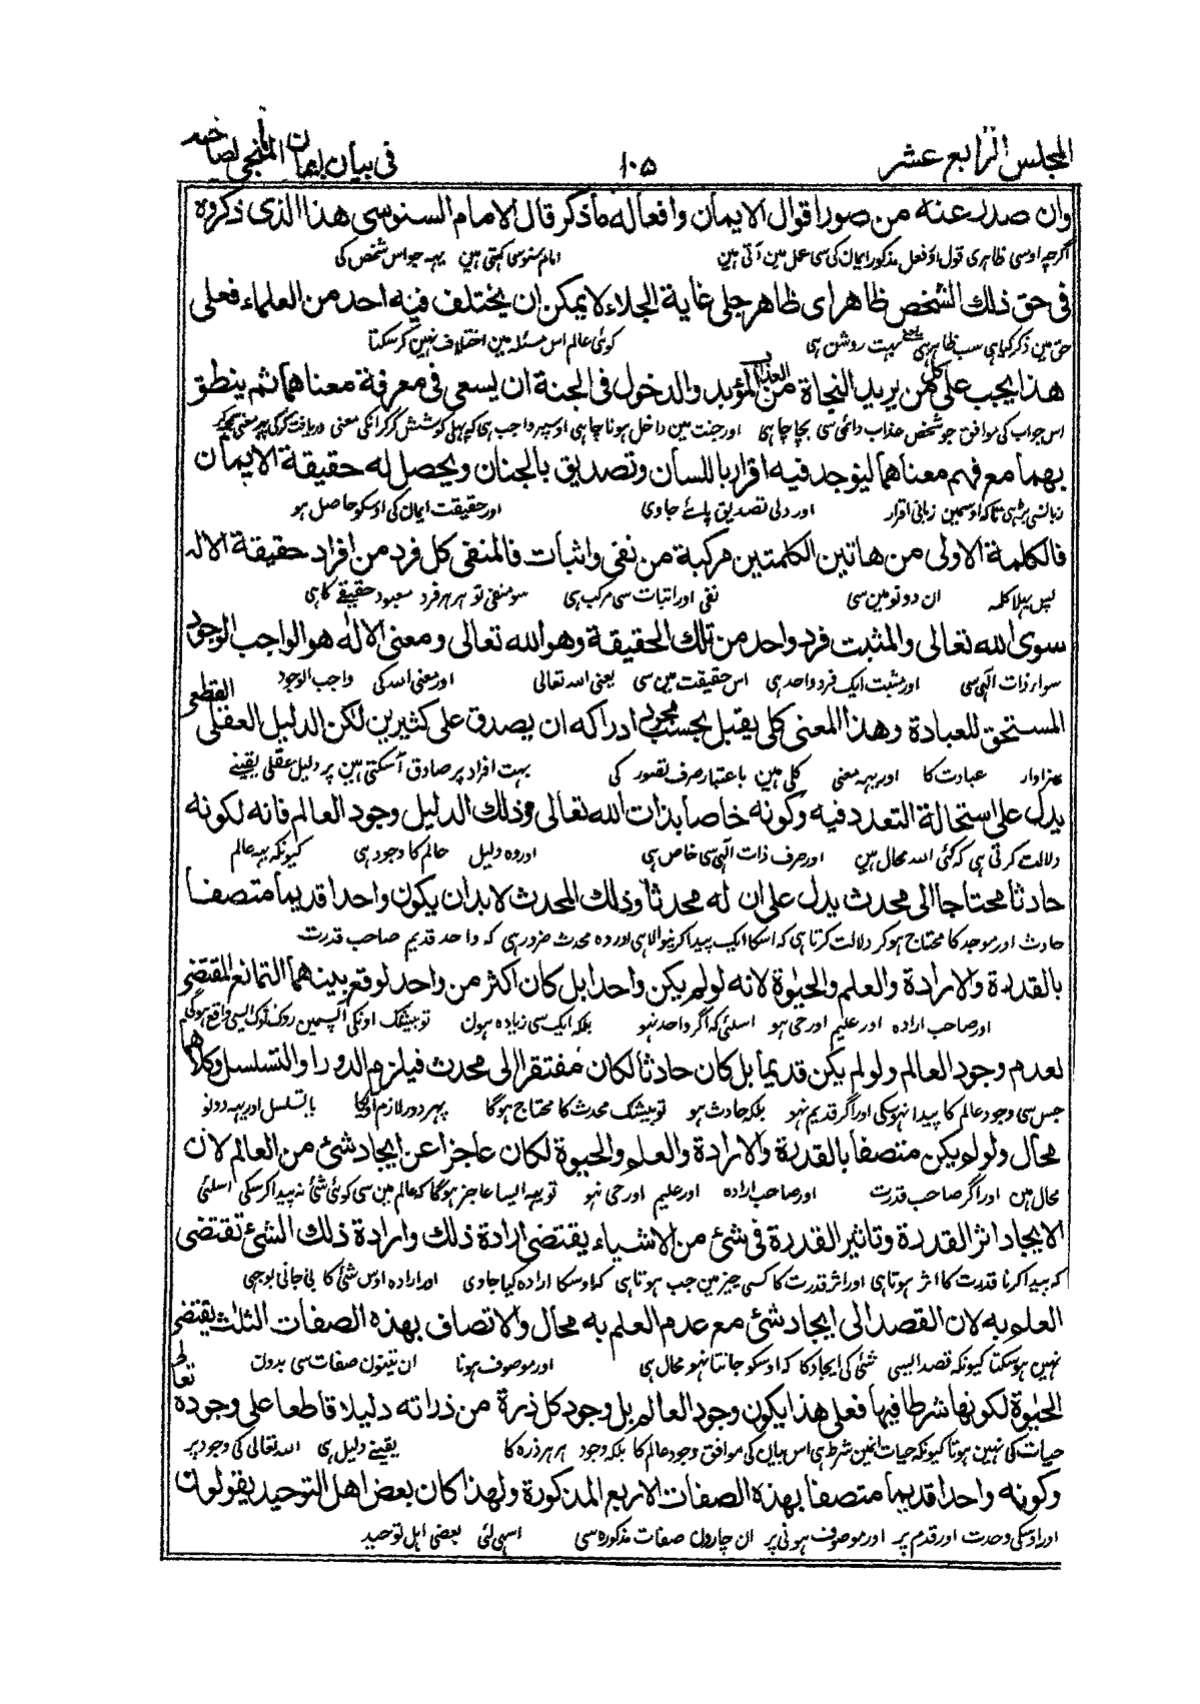 المجلس الرابع عشر
١٠٥
فی بیان ایمان المنجی لصاحبه
وان صدر عنه من صور اقوال الایمان وافعاله ما ذکر قال الامام السنوسی هذا الذی ذکروه
اگرچہ اوسی ظاہری قول اور فعل مذکور ایمان کی سی عمل مین آتی ہین امام سنوسی کہتی ہین یہہ جو اس شخص کی
فی حق ذلك الشخص ظاهر ای ظاهر جلی غایة الجلاء لا یمکن ان یختلف فیه احد من العلماء فعلی
حق مین ذکر کیا ہی سب ظاہر ہی بہت روشن ہی کوئی عالم اس مسئلہ مین اختلاف نہین کر سکتا
هذا یجب علی کل من یرید النجاة من العذاب المؤبد والدخول فی الجنة ان یسعی فی معرفة معناهما ثم ینطق
اس جواب کی موافق جو شخص عذاب دائمی سی بچا چاہی اور جنت مین داخل ہونا چاہی اوسپر واجب ہی کہ پہلی کوشش کر کر انکی معنی دریافت کری پہر معنی سمجھکر
بهما مع فهم معناهما لیوجد فیه اقرار باللسان وتصدیق بالجنان ویحصل له حقیقة الایمان
زبانسی پڑہی تاکہ اوسمین زبانی اقرار اور دلی تصدیق پائے جاوی اور حقیقت ایمان کی اوسکو حاصل ہو
فالکلمة الاولی من هاتین الکلمتین مرکبة من نفی واثبات فالمنفی کل فرد من افراد حقیقة الاله
پس پہلا کلمہ ان دونو مین سی نفی اور اثبات سی مرکب ہی سو منفی تو ہر ہر فرد معبود حقیقے کا ہی
سوی الله تعالی والمثبت فرد واحد من تلك الحقیقة وهو الله تعالی ومعنی الاله هو الواجب الوجود
سوار ذات الٰہی سی اور مثبت ایک فرد واحد ہی اس حقیقت مین سی یعنی اللہ تعالی اور معنی اللہ کی واجب الوجود
المستحق للعبادة وهذا المعنی کلی یقبل بحسب مجرد ادراکه ان یصدق علی کثیرین لکن الدلیل العقلی القطعی
سزاوار عبادت کا اور یہہ معنی کلی ہین باعتبار صرف تصور کی بہت افراد پر صادق آ سکتی ہین پر دلیل عقلی یقینے
یدل علی استحالة التعدد فیه وکونه خاصا بذات الله تعالی وذلك الدلیل وجود العالم فانه لکونه
دلالت کرتی ہی کہ کئی اللہ محال ہین اور صرف ذات الٰہی سی خاص ہی اور وہ دلیل عالم کا وجود ہی کیونکہ یہہ عالم
حادثا محتاجا الی محدث یدل علی ان له محدثا وذلك المحدث لابد ان یکون واحدا قدیما متصفا
حادث اور موجد کا محتاج ہو کر دلالت کرتا ہی کہ اسکا ایک پیدا کرنیوالا ہی اور وہ محدث ضرور ہی کہ واحد قدیم صاحب قدرت
بالقدرة والارادة والعلم والحیوة لانه لو لم یکن واحدا بل کان اکثر من واحد لوقع بینهما التمانع المقتضی
اور صاحب ارادہ اور علیم اور حی ہو اسلئی کہ اگر واحد نہو بلکہ ایک سی زیادہ ہون تو بیشک اونکی آپسمین روک ٹوک ایسی واقع ہوگی
لعدم وجود العالم ولو لم یکن قدیما بل کان حادثا لکان مفتقرا الی محدث فیلزم الدور او التسلسل وکلاهما
جس سی وجود عالم کا پیدا نہو سکی اور اگر قدیم نہو بلکہ حادث ہو تو بیشک محدث کا محتاج ہوگا پہر دور لازم آویگا یا تسلسل اور یہہ دونو
محال ولو لم یکن متصفا بالقدرة والارادة والعلم والحیوة لکان عاجزا عن ایجاد شئ من العالم لان
محال ہین اور اگر صاحب قدرت اور صاحب ارادہ اور علیم اور حی نہو تو یہہ ایسا عاجز ہوگا کہ عالم مین سی کوئی شئ نہ پیدا کر سکی اسلئی
الایجاد اثر القدرة وتاثیر القدرة فی شئ من الاشیاء یقتضی ارادة ذلك وارادة ذلك الشئ تقتضی
کہ پیدا کرنا قدرت کا اثر ہوتا ہی اور اثر قدرت کا کسی چیز مین جب ہوتا ہی کہ اوسکا ارادہ کیا جاوی اور ارادہ اوس شئ کا بی جانی بوجہی
العلم به لان القصد الی ایجاد شئ مع عدم العلم به محال والاتصاف بهذه الصفات الثلث یقتضی
نہین ہو سکتا کیونکہ قصد ایسی شئ کی ایجاد کا کہ اوسکو جانتا نہو محال ہی اور موصوف ہونا ان تینون صفات سی بدون
الحیوة لکونها شرطا فیها فعلی هذا یکون وجود العالم بل وجود کل ذرة من ذراته دلیلا قاطعا علی وجوده تعالی
حیات کی نہین ہوتا کیونکہ حیات انمین شرط ہی اس بیان کی موافق وجود عالم کا بلکہ وجود ہر ہر ذرہ کا یقینے دلیل ہی اللہ تعالی کی وجود پر
وکونه واحدا قدیما متصفا بهذه الصفات الاربع المذکورة ولهذا کان بعض اهل التوحید یقولون
اور اوسکی وحدت اور قدم پر اور موصوف ہونی پر ان چارون صفات مذکورہ سی اسی لئی بعضی اہل توحید